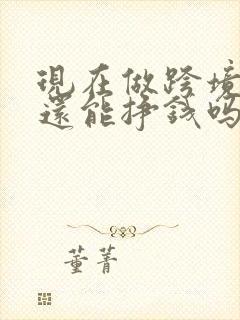 現在做跨境
還能掙錢嗎
董菁